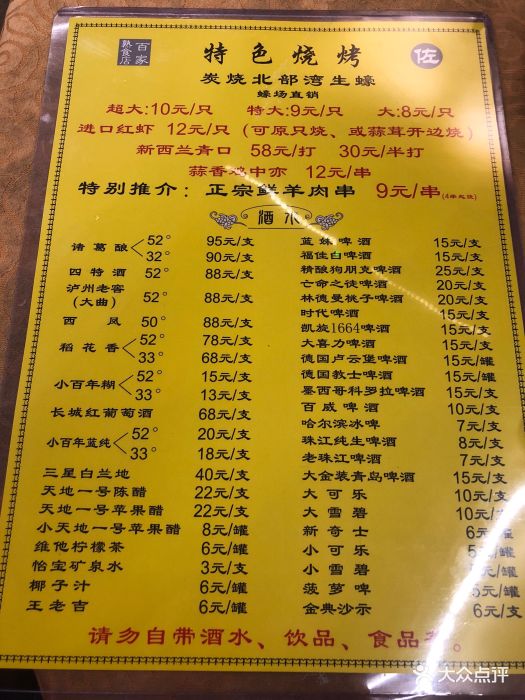 百家
熟食店
特色烧烤
佐
炭烧北部湾生蠔
蠔场直销
超大:10元/只 特大:9元/只 大:8元/只
进口红虾 12元/只(可原只烧、或蒜茸开边烧)
新西兰青口 58元/打 30元/半打
蒜香鸡中亦 12元/串
特别推介：正宗鲜羊肉串 9元/串
酒水
诸葛酿 52° 95元/支
32° 90元/支
四特酒 52° 88元/支
泸州老窖(大曲) 52° 88元/支
西凤 50° 88元/支
稻花香 52° 78元/支
33° 68元/支
小百年糊 52° 15元/支
33° 13元/支
长城红葡萄酒 68元/支
小百年蓝纯 52° 20元/支
33° 18元/支
三星白兰地 40元/支
天地一号陈醋 22元/支
天地一号苹果醋 22元/支
小天地一号苹果醋 8元/罐
维他柠檬茶 6元/罐
怡宝矿泉水 3元/支
椰子汁 6元/罐
王老吉 6元/罐
蓝妹啤酒 15元/支
福佳白啤酒 15元/支
精酿狗朋克啤酒 25元/支
亡命之徒啤酒 20元/支
林德曼桃子啤酒 20元/支
时代啤酒 15元/支
凯旋1664啤酒 15元/支
大喜力啤酒 15元/支
德国卢云堡啤酒 15元/罐
德国教士啤酒 15元/罐
墨西哥科罗拉啤酒 15元/支
百威啤酒 10元/支
哈尔滨冰啤 7元/支
珠江纯生啤酒 8元/支
老珠江啤酒 7元/支
大金装青岛啤酒 15元/支
大可乐 10元/支
大雪碧 10元/
新奇士 6元/罐
小可乐 5元/罐
小雪碧 元/罐
菠萝啤 6元/罐
金典沙示 6元/支
请勿自带酒水、饮品、食品
大众点评